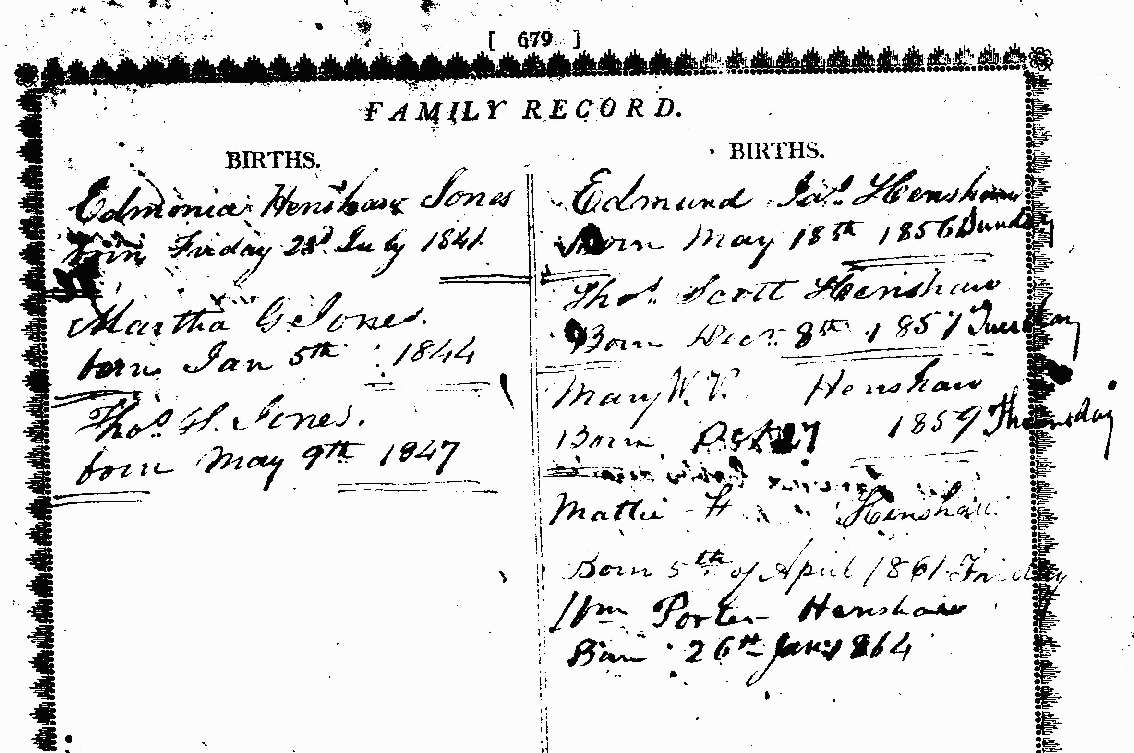 [ 679 ]
FAMILY RECORD.
BIRTHS.
Edmonia Henshaw Jones
born Friday 23d July 1841
Martha G Jones.
born Jan 5th 1844
Thos. H. Jones.
born May 9th 1847
BIRTHS.
Edmund Jas. Henshaw
Born May 18th 1856 Sunday
Thos. Scott Henshaw
Born Decr. 8th 1857 Tuesday
Mary W. V. Henshaw
Born 27 1859
Mattie H Henshaw
Born 5th of April 1861 Friday
Wm Porter Henshaw
Born 26th Jany 1864